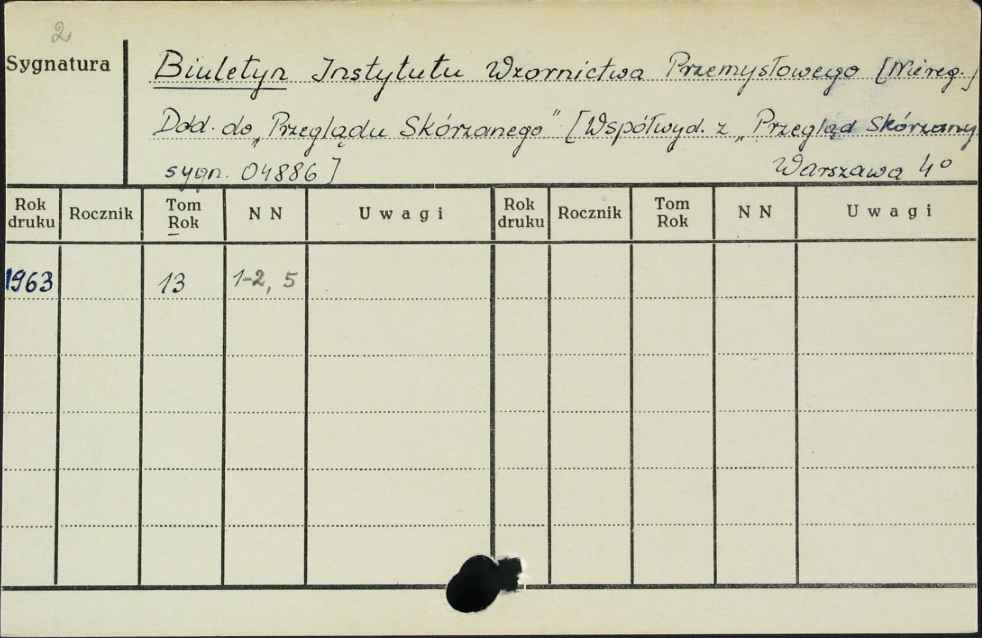 2
Sygnatura
Biuletyn Instytutu Wzornictwa Przemysłowego [Niereg.]
Dod. do „Przeglądu Skórzanego" [Współwyd. z „Przegląd Skórzany
sygn. 04886] Warszawa 4°
Rok druku Rocznik Tom Rok NN Uwagi Rok druku Rocznik Tom Rok NN Uwagi
1963 13 1-2, 5